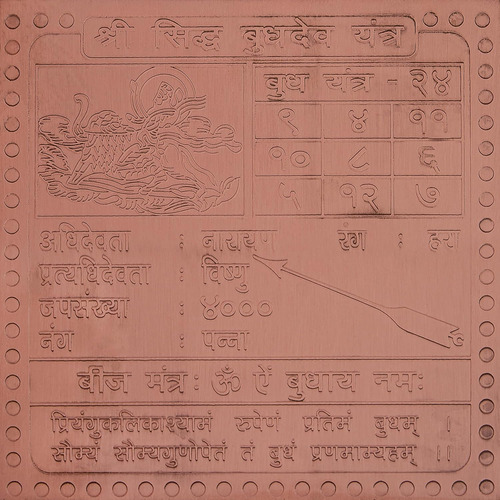 श्री सिद्ध बुधदेव यंत्र
बुध यंत्र - २४
९ ४ ११
१० ८ ६
५ १२ ७
अधिदेवता : नारायण रंग : हरा
प्रत्यधिदेवता : विष्णु
जपसंख्या : ४०००
नंग : पन्ना
बीज मंत्र: ॐ ऐं बुधाय नमः
प्रियंगुकलिकाश्यामं रुपेणं प्रतिमं बुधम् ।
सौम्यं सौम्यगुणोपेतं तं बुधं प्रणमाम्यहम् ।।